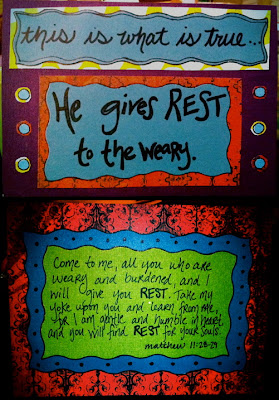 this is what is true...
He gives REST
to the weary.
Come to me, all you who are
weary and burdened, and I
will give you REST. Take my
yoke upon you and learn from me,
for I am gentle and humble in heart,
and you will find REST for your souls.
matthew 11:28-29